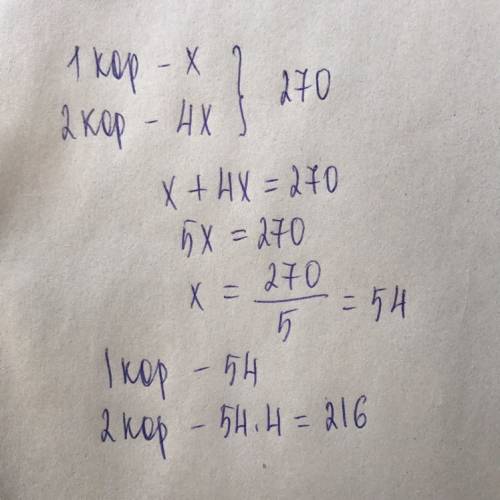 1 кор - x } 270
2 кор - 4x
x + 4x = 270
5x = 270
x = 270/5 = 54
1 кор - 54
2 кор - 54.4 = 216